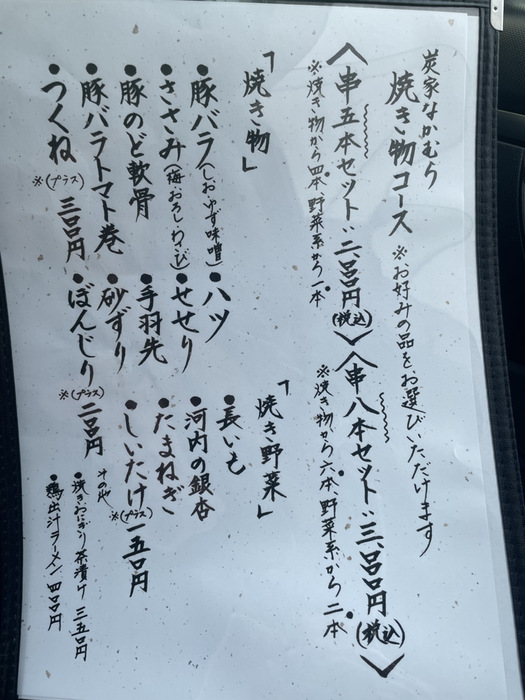 炭家なかむり
焼き物コース ※お好みの品をお選びいただけます
〈串五本セット：二、〇〇〇円(税込)〉
※焼き物から四本、野菜系から一本
〈串八本セット：三、〇〇〇円(税込)〉
※焼き物から六本、野菜系から二本
「焼き物」
●豚バラ(しお・ゆず味噌)
●ささみ(梅・おろし・わさび)
●豚のど軟骨
●豚バラトマト巻
●つくね※(プラス)三〇〇円
●ハツ
●せせり
●手羽先
●砂ずり
●ぼんじり※(プラス)二〇〇円
「焼き野菜」
●長いも
●河内の銀杏
●たまねぎ
●しいたけ※(プラス)一五〇円
その他
●焼きおにぎり茶漬け 三五〇円
●鶏出汁ラーメン 四〇〇円